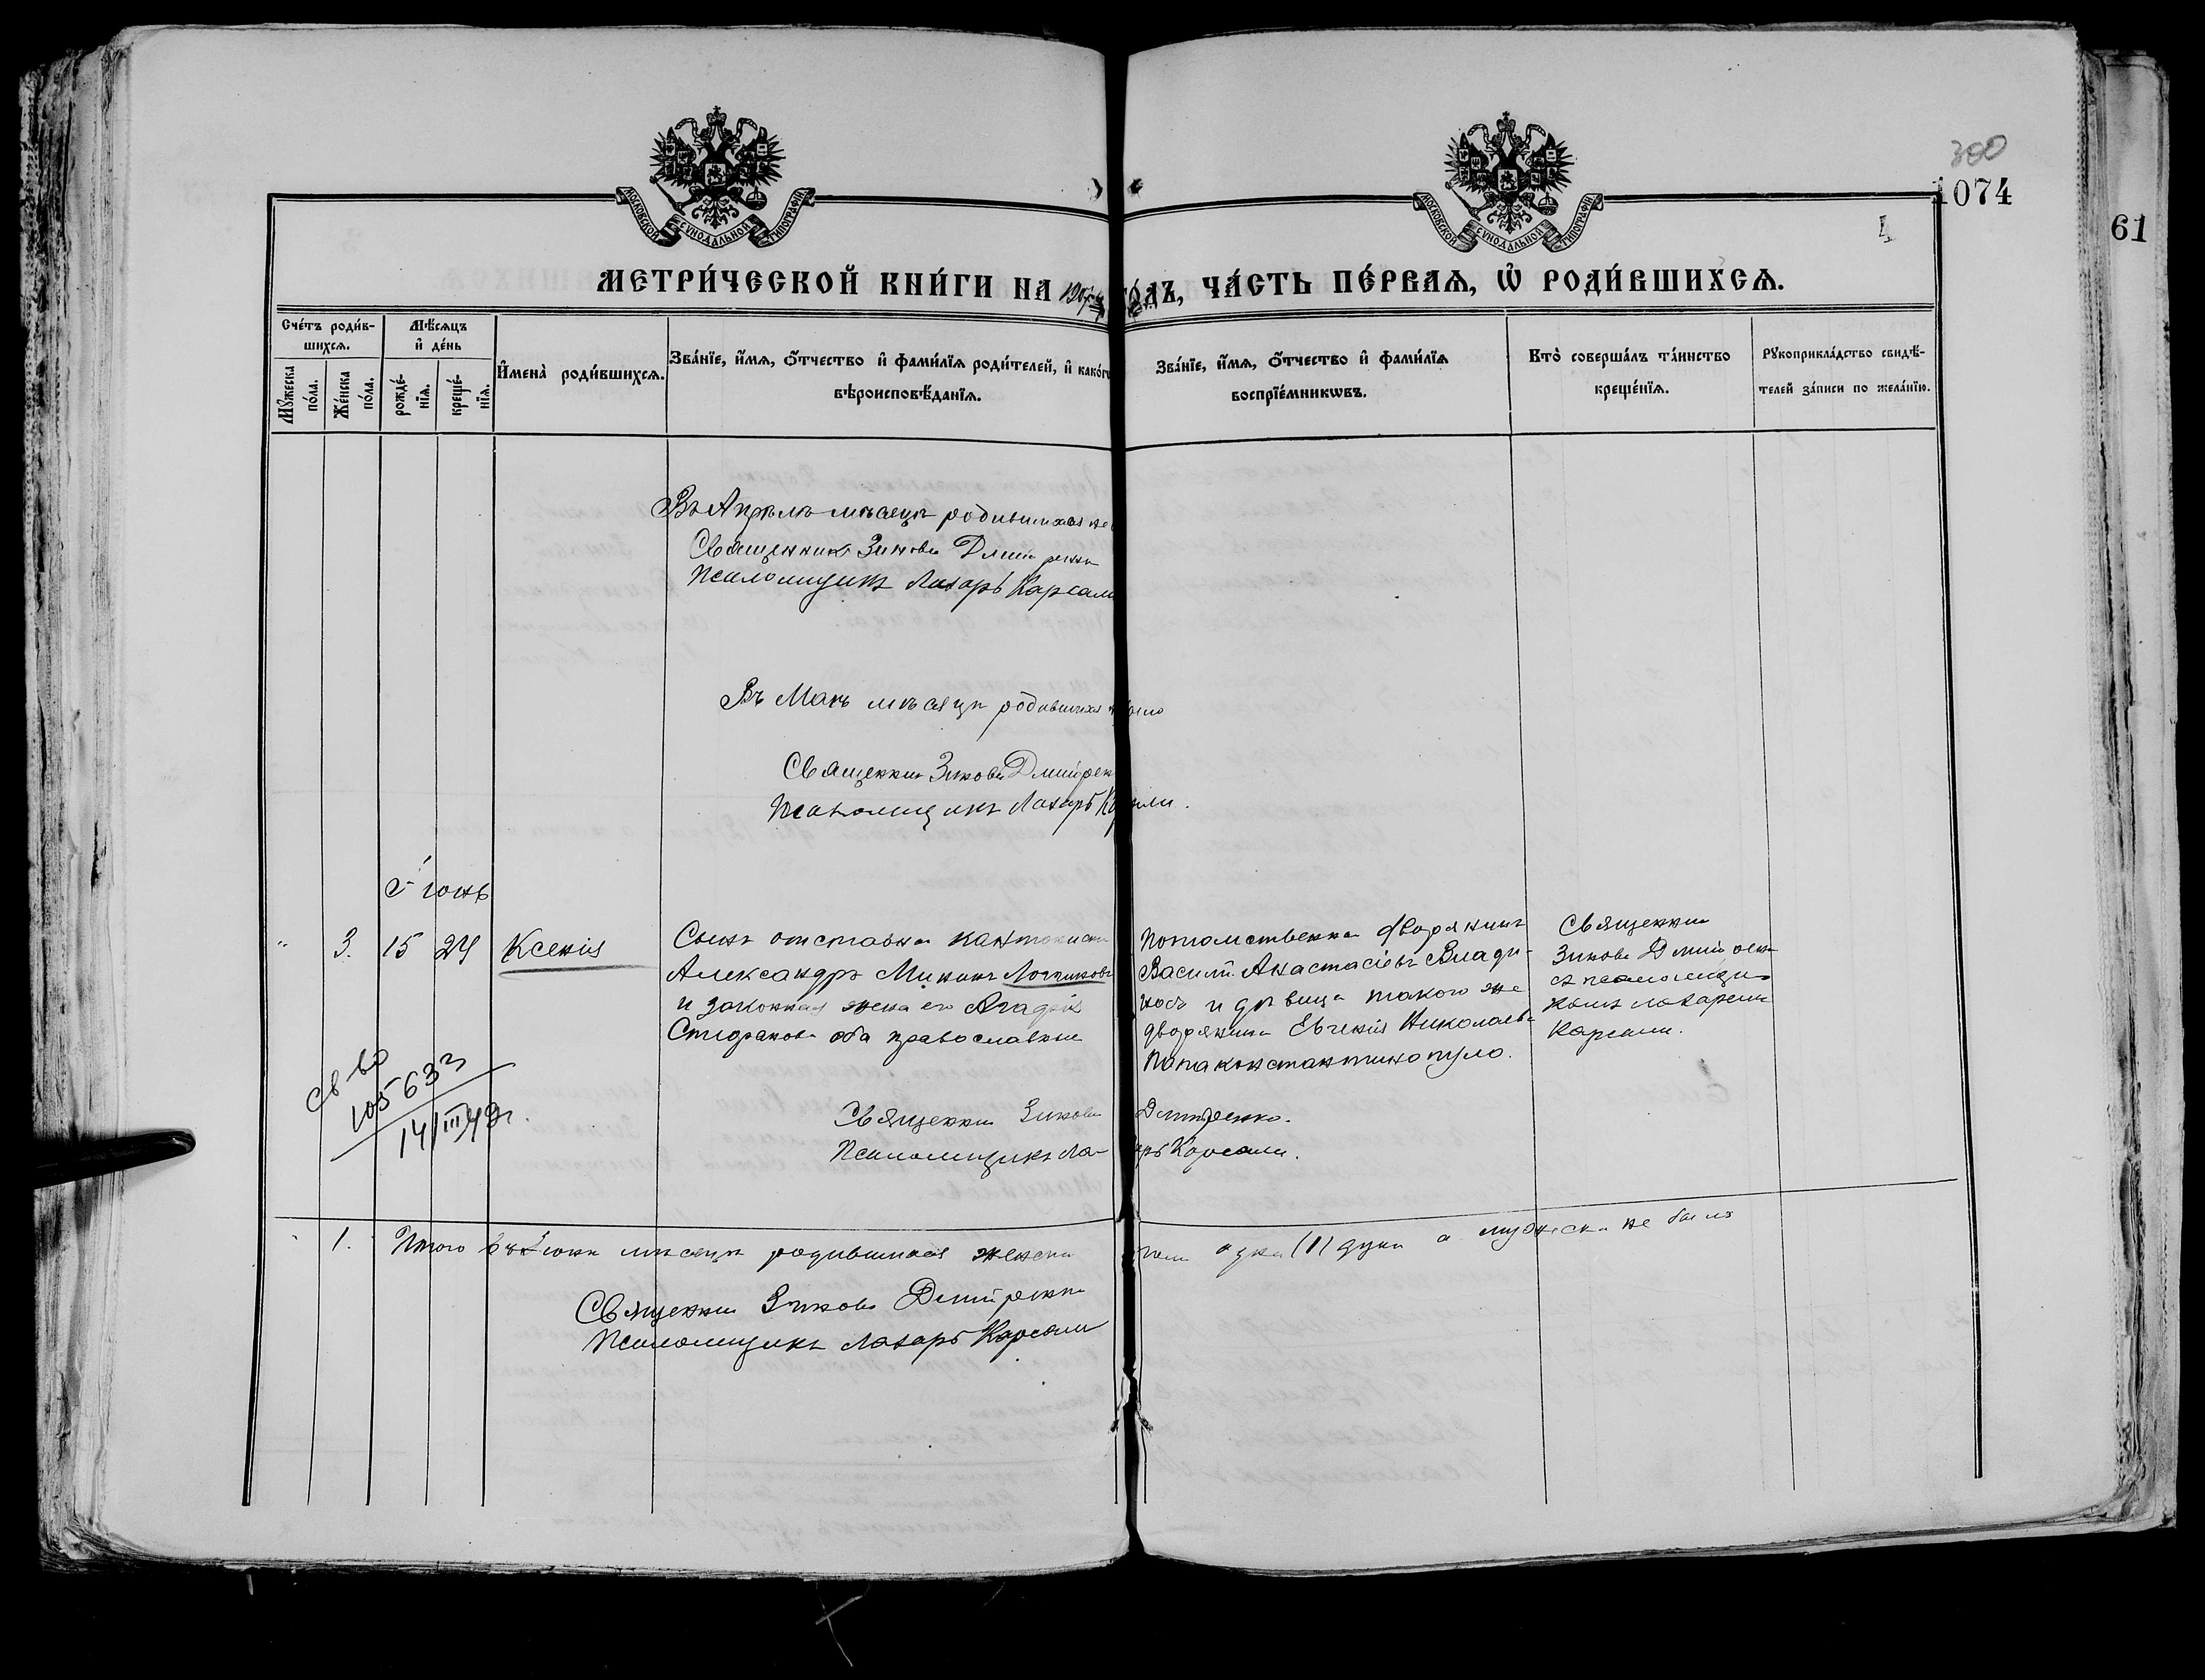 300
1074
61
4
МОСКОВСКОЙ СѴНОДАЛЬНОЙ ТИПОГРАФІИ
МОСКОВСКОЙ СѴНОДАЛЬНОЙ ТИПОГРАФІИ
МЕТРИ́ЧЕСКОЙ КНИ́ГИ НА ГО́ДЪ, ЧА́СТЬ ПЕ́РВАЯ, Ѡ РОДИ́ВШИХСЯ.
Сче́тъ роди́в-
шихся.
Мѣ́сяцъ
и де́нь
Мꙋ́жеска
по́ла.
Же́нска
по́ла.
рожде́-
нїя.
креще́-
нїя.
И҆мена̀ роди́вшихся.
Зва́нїе, и҆́мя, ѻ҆́тчество и҆ фами́лїя роди́телей, и҆ како́гѡ
вѣроисповѣ́данїя.
Зва́нїе, и҆́мя, ѻ҆́тчество и҆ фами́лїя
воспрїе́мникѡвъ.
Кто̀ соверша́лъ та́инство
креще́нїя.
Рꙋкоприкла́дство свидѣ́-
телей за́писи по жела́нїю.
Въ Апрѣлѣ мѣсяцѣ родившихся не
Священникъ Зиновій Дмитренко
Псаломщикъ Лазарь Карсали
Въ Маѣ мѣсяцѣ родившихся не было
Священникъ Зиновій Дмитренко
Псаломщикъ Лазарь Карсали.
Іюнь
3. 15 24 Ксенія
Сынъ отставна кантониста
Александръ Мининъ
и законная жена его
оба православные
Потомственна дворянинъ
Василій Анастасіевъ Влади-
носъ и дѣвица такого же
дворянина Евгенія Николаева
Папаконстантинопуло.
Священникъ
Зиновій Дмитренко
съ псаломщи-
комъ Лазаремъ
Карсали.
Св-во
105633
14/III 49г.
Священникъ Зиновій Дмитренко.
Псаломщикъ Лазарь Карсали.
1. Итого въ Іюнѣ мѣсяцѣ родившихся женска пола одна (1) душа а мужеска не было
Священникъ Зиновій Дмитренко
Псаломщикъ Лазарь Карсали